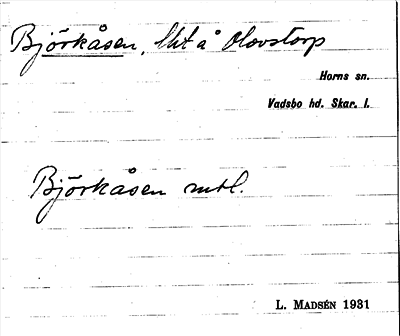 Björkåsen, lht å Olovstorp
Horns sn.
Vadsbo hd. Skar. l.
Björkåsen mtl.
L. MADSÉN 1931